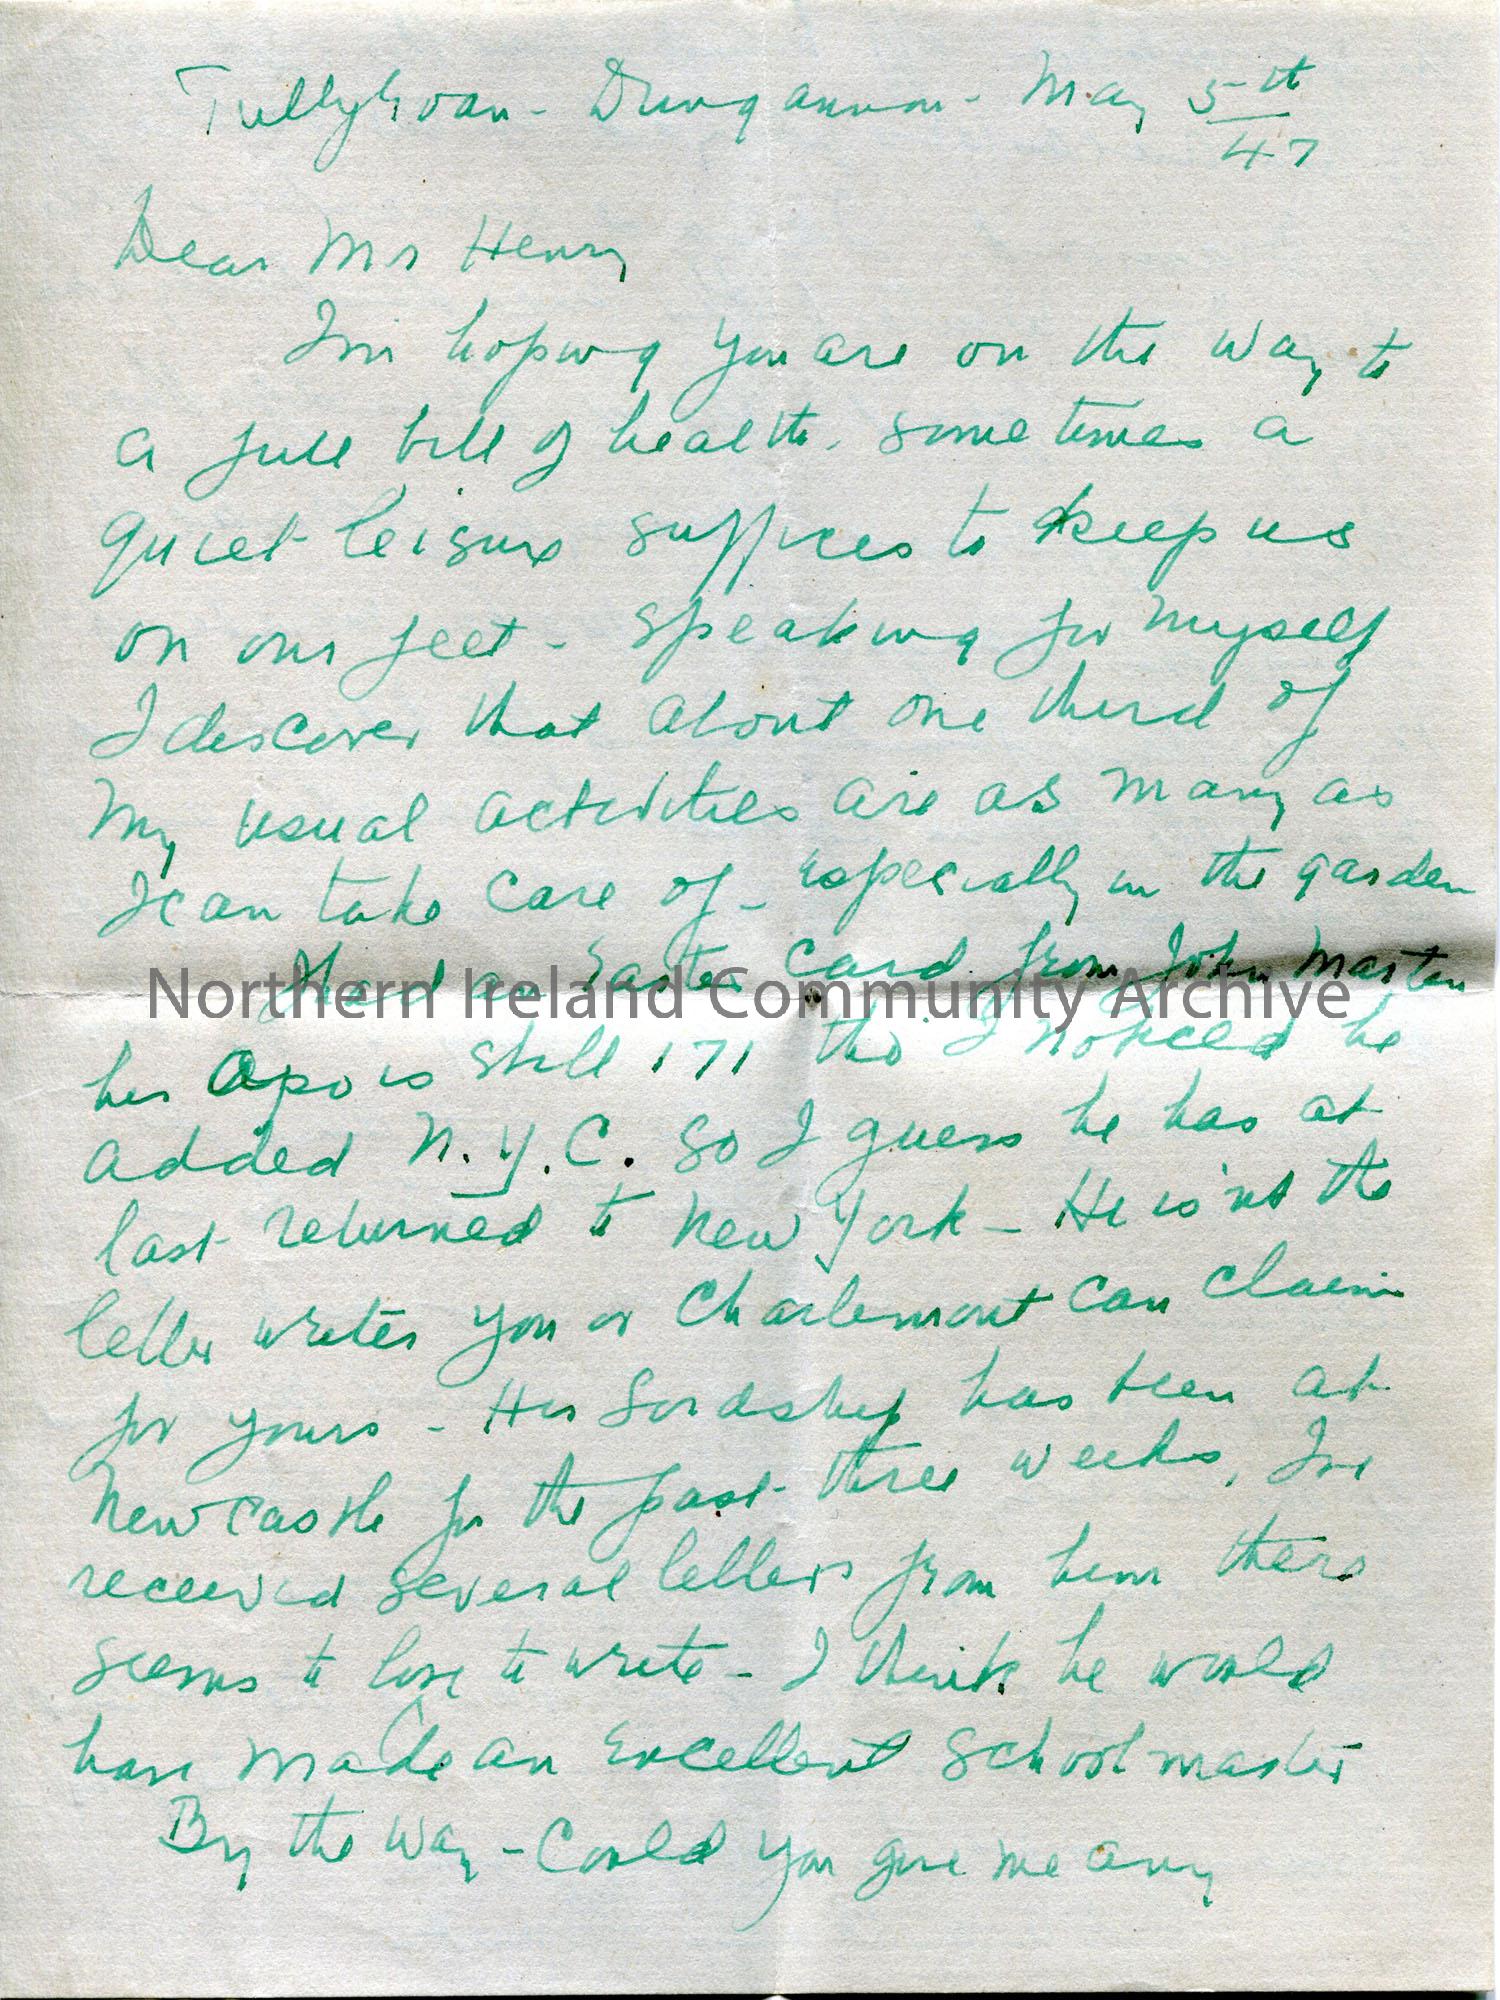 Tullyroan - Dungannon - May 5th
47
Dear Mr Henry
I'm hoping you are on the way to
a full bill of health. Sometimes a
quiet leisure suffices to keep us
on our feet - Speaking for myself
I discover that about one third of
my usual activities are as many as
I can take care of - especially in the garden
Had an Easter Card from John Marten
Northern Ireland Community Archive
his Apo is still 171 tho' I noticed he
added N.Y.C. so I guess he has at
last returned to New York - He is'nt the
letter writer you or Charlemont can claim
for yours - His Lordship has been at
Newcastle for the past three weeks, I've
received several letters from him there
seems to love to write - I think he would
have made an excellent school master
By the way - Could you give me any